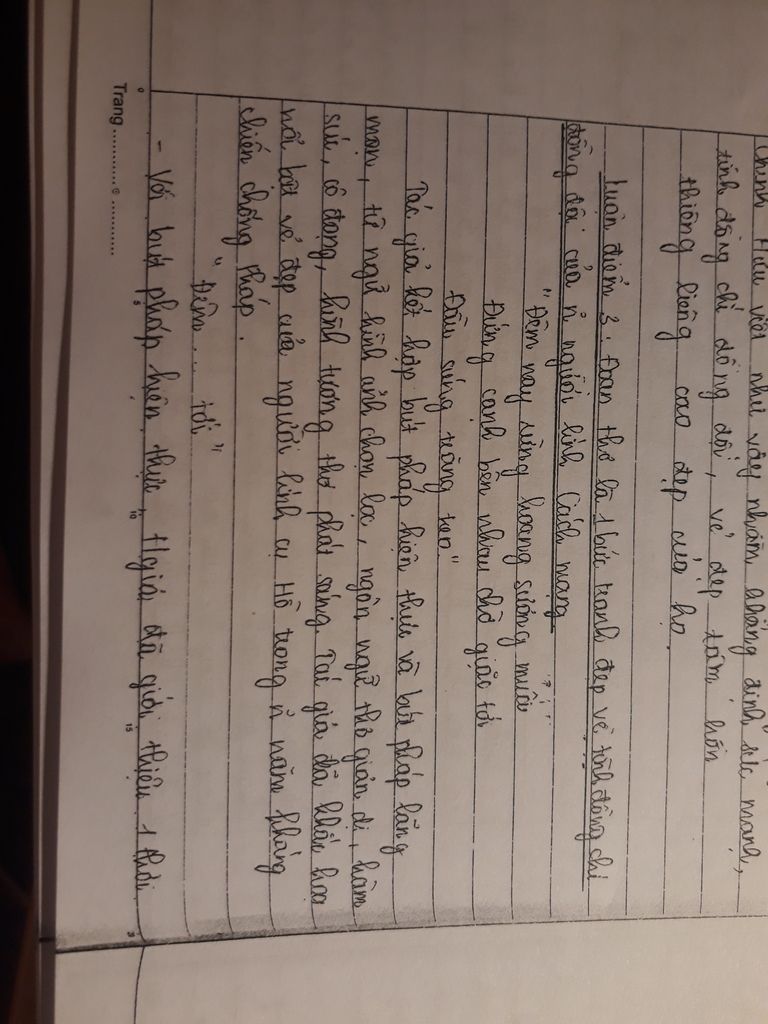 Chính Hữu viết như vậy nhằm khẳng định sức mạnh,
tình đồng chí đồng đội, vẻ đẹp tâm hồn
thiêng liêng cao đẹp của họ.
Luận điểm 3: Đoạn thơ là 1 bức tranh đẹp về tình đồng chí
đồng đội của n~ người lính Cách mạng
"Đêm nay rừng hoang sương muối
Đứng cạnh bên nhau chờ giặc tới
Đầu súng trăng treo"
Tác giả kết hợp bút pháp hiện thực và bút pháp lãng
mạn, từ ngữ hình ảnh chọn lọc, ngôn ngữ thơ giản dị, hàm
súc, cô đọng, hình tượng thơ phát sáng. Tác giả đã khắc họa
nổi bật vẻ đẹp của người lính cụ Hồ trong n~ năm kháng
chiến chống Pháp.
"Đêm ... tới"
- Với bút pháp hiện thực, t/giả đã giới thiệu 1 thời
Trang ...............